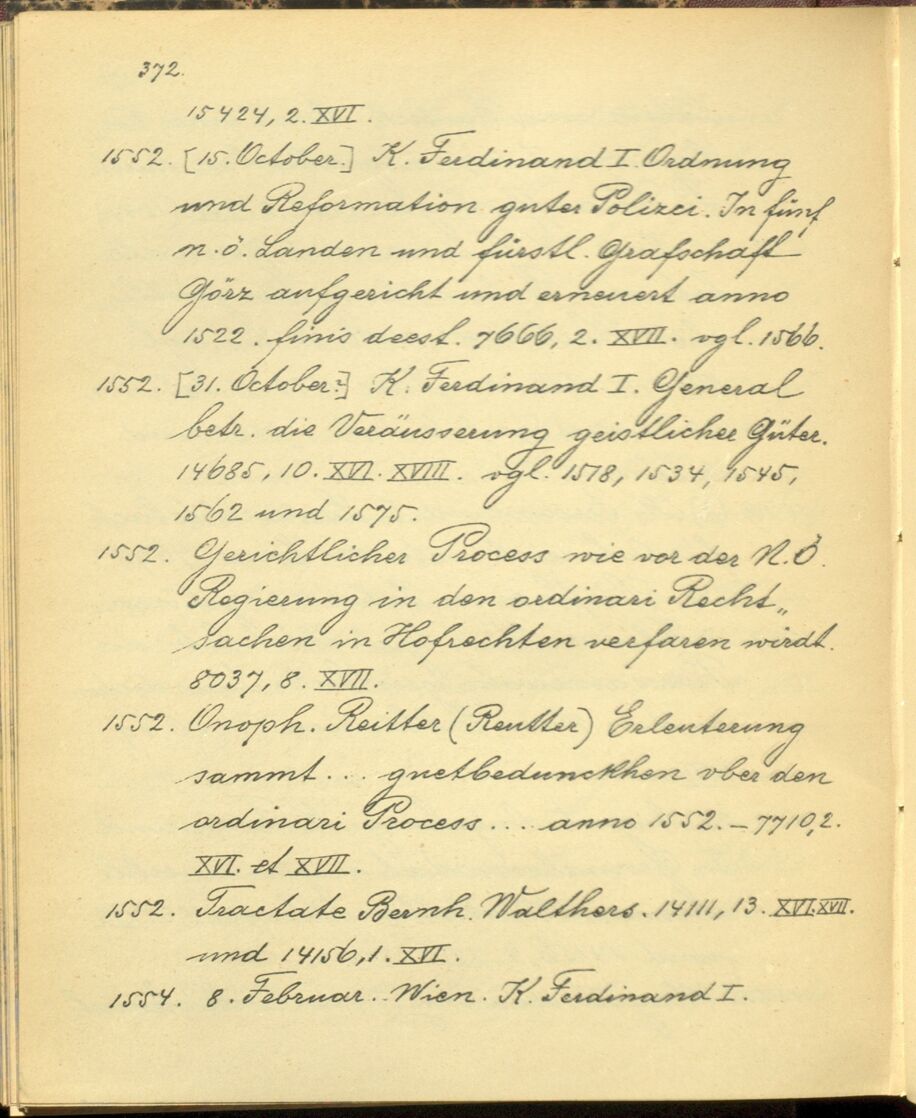 372.
15424, 2. XVI.
1552. [15. October.] K. Ferdinand I. Ordnung
und Reformation guter Polizei. In fünf
n. ö. Landen und fürstl. Grafschaft
Görz aufgericht und erneuert anno
1522. finis deest. 7666, 2. XVII. vgl. 1566.
1552. [31. October.] K. Ferdinand I. General
betr. die Veräusserung geistlicher Güter.
14685, 10. XVI. XVIII. vgl. 1518, 1534, 1545,
1562 und 1575.
1552. Gerichtlicher Process wie vor der N. Ö.
Regierung in den ordinari Recht„
sachen in Hofrechten verfaren wirdt.
8037, 8. XVII.
1552. Onoph. Reitter (Reutter) Erleuterung
sammt ... guetbedunckhen vber den
ordinari Process ... anno 1552. – 7710, 2.
XVI. et XVII.
1552. Tractate Bernh. Walthers. 14111, 13. XVI. XVII.
und 14156, 1. XVI.
1554. 8. Februar. Wien. K. Ferdinand I.